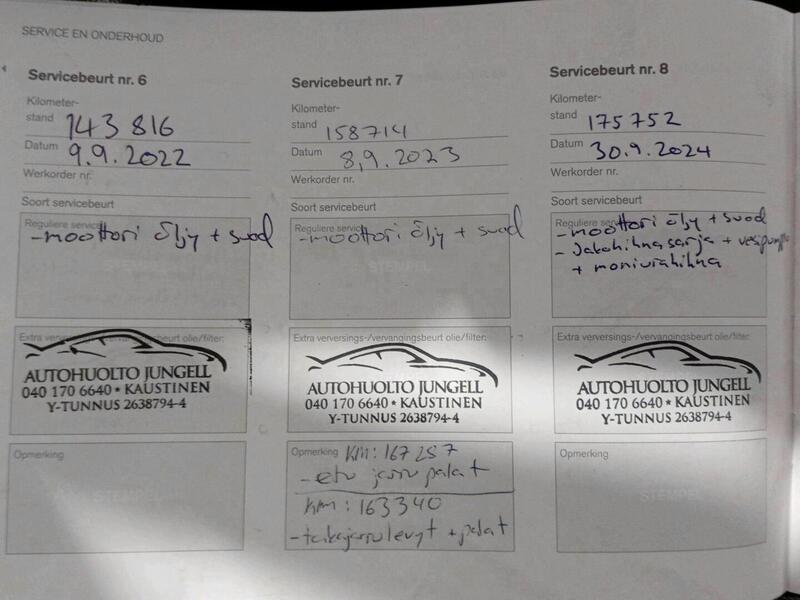 SERVICE EN ONDERHOUD
Servicebeurt nr. 6
Kilometer-
stand 143 816
Datum 9.9.2022
Werkorder nr.
Soort servicebeurt
Reguliere service
-moottori öljy + suod
Extra verversings-/vervangingsbeurt olie/filter:
AUTOHUOLTO JUNGELL
040 170 6640 * KAUSTINEN
Y-TUNNUS 2638794-4
Opmerking
STEMPEL
Servicebeurt nr. 7
Kilometer-
stand 158714
Datum 8,9.2023
Werkorder nr.
Soort servicebeurt
Reguliere service
-moottori öljy + suod
STEMPEL
Extra verversings-/vervangingsbeurt olie/filter:
AUTOHUOLTO JUNGELL
040 170 6640 * KAUSTINEN
Y-TUNNUS 2638794-4
Opmerking KM: 167257
-etu jarru palat
KM: 163340
-takajarrulevyt + palat
Servicebeurt nr. 8
Kilometer-
stand 175752
Datum 30.9.2024
Werkorder nr.
Soort servicebeurt
Reguliere service
-moottori öljy + suod
- Jakohihnasarja + vesipumppu
+ moniurahihna
Extra verversings-/vervangingsbeurt olie/filter:
AUTOHUOLTO JUNGELL
040 170 6640 * KAUSTINEN
Y-TUNNUS 2638794-4
Opmerking
STEMPEL